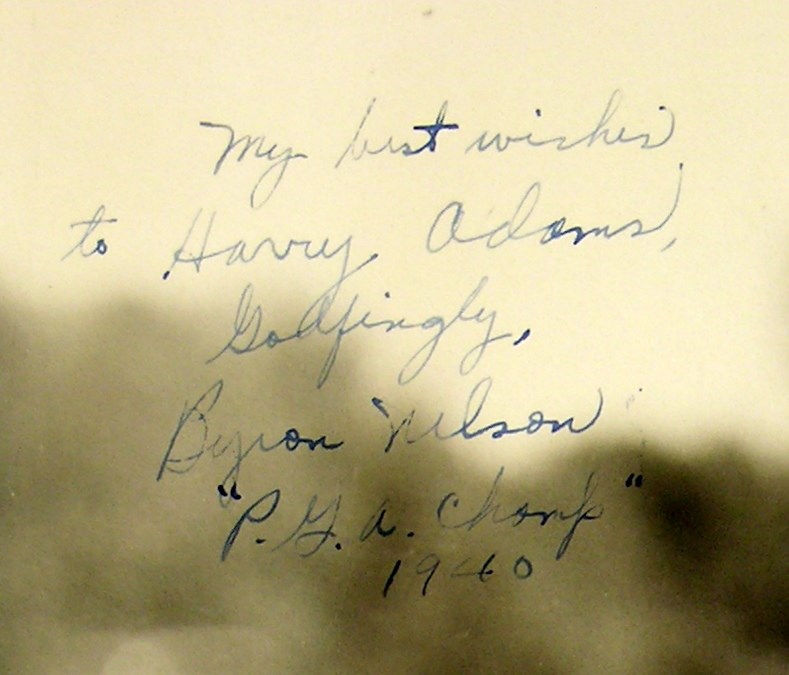 My best wishes
to Harry Adams,
Golfingly,
Byron Nelson
"P.G.A. Champ"
1940